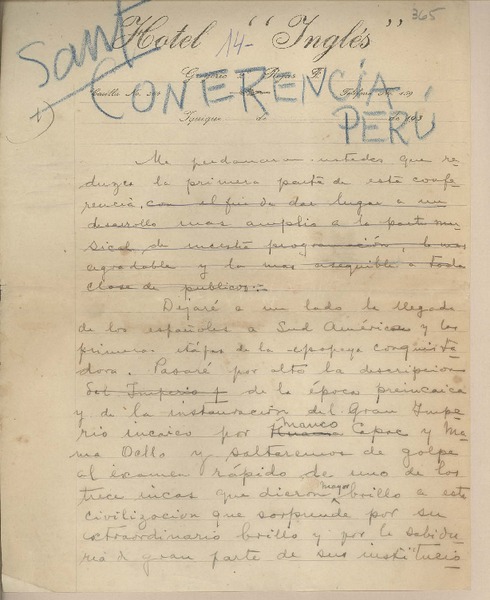 365
Sant
Hotel "Inglés"
14-
Gregorio Rojas F.
CONERENCÍA,
PERÚ
Casilla No.
Teléfono No.
Iquique de de 193
1)
Me perdonaran ustedes que re-
duzca la primera parte de esta confe-
rencia, con el fin de dar lugar a un
desarrollo mas amplio a la parte mu-
sical de nuestra programación, la mas
agradable y la mas asequible a toda
clase de publicos:-
Dejaré a un lado la llegada
de los españoles a Sud América y las
primeras etápas de la epopeya conquista-
dora. Pasaré por alto la descripcion
del Imperio de la época preincaica
y de la instauración del Gran Impe-
rio incaico por Huaina Manco Capac y Ma-
ma Ocllo y saltaremos de golpe
al exámen rápido de uno de los
trece incas que dieron mayor brillo a esta
civilizacion que sorprende por su
extraordinario brillo y por la sabidu-
ria de gran parte de sus institucio